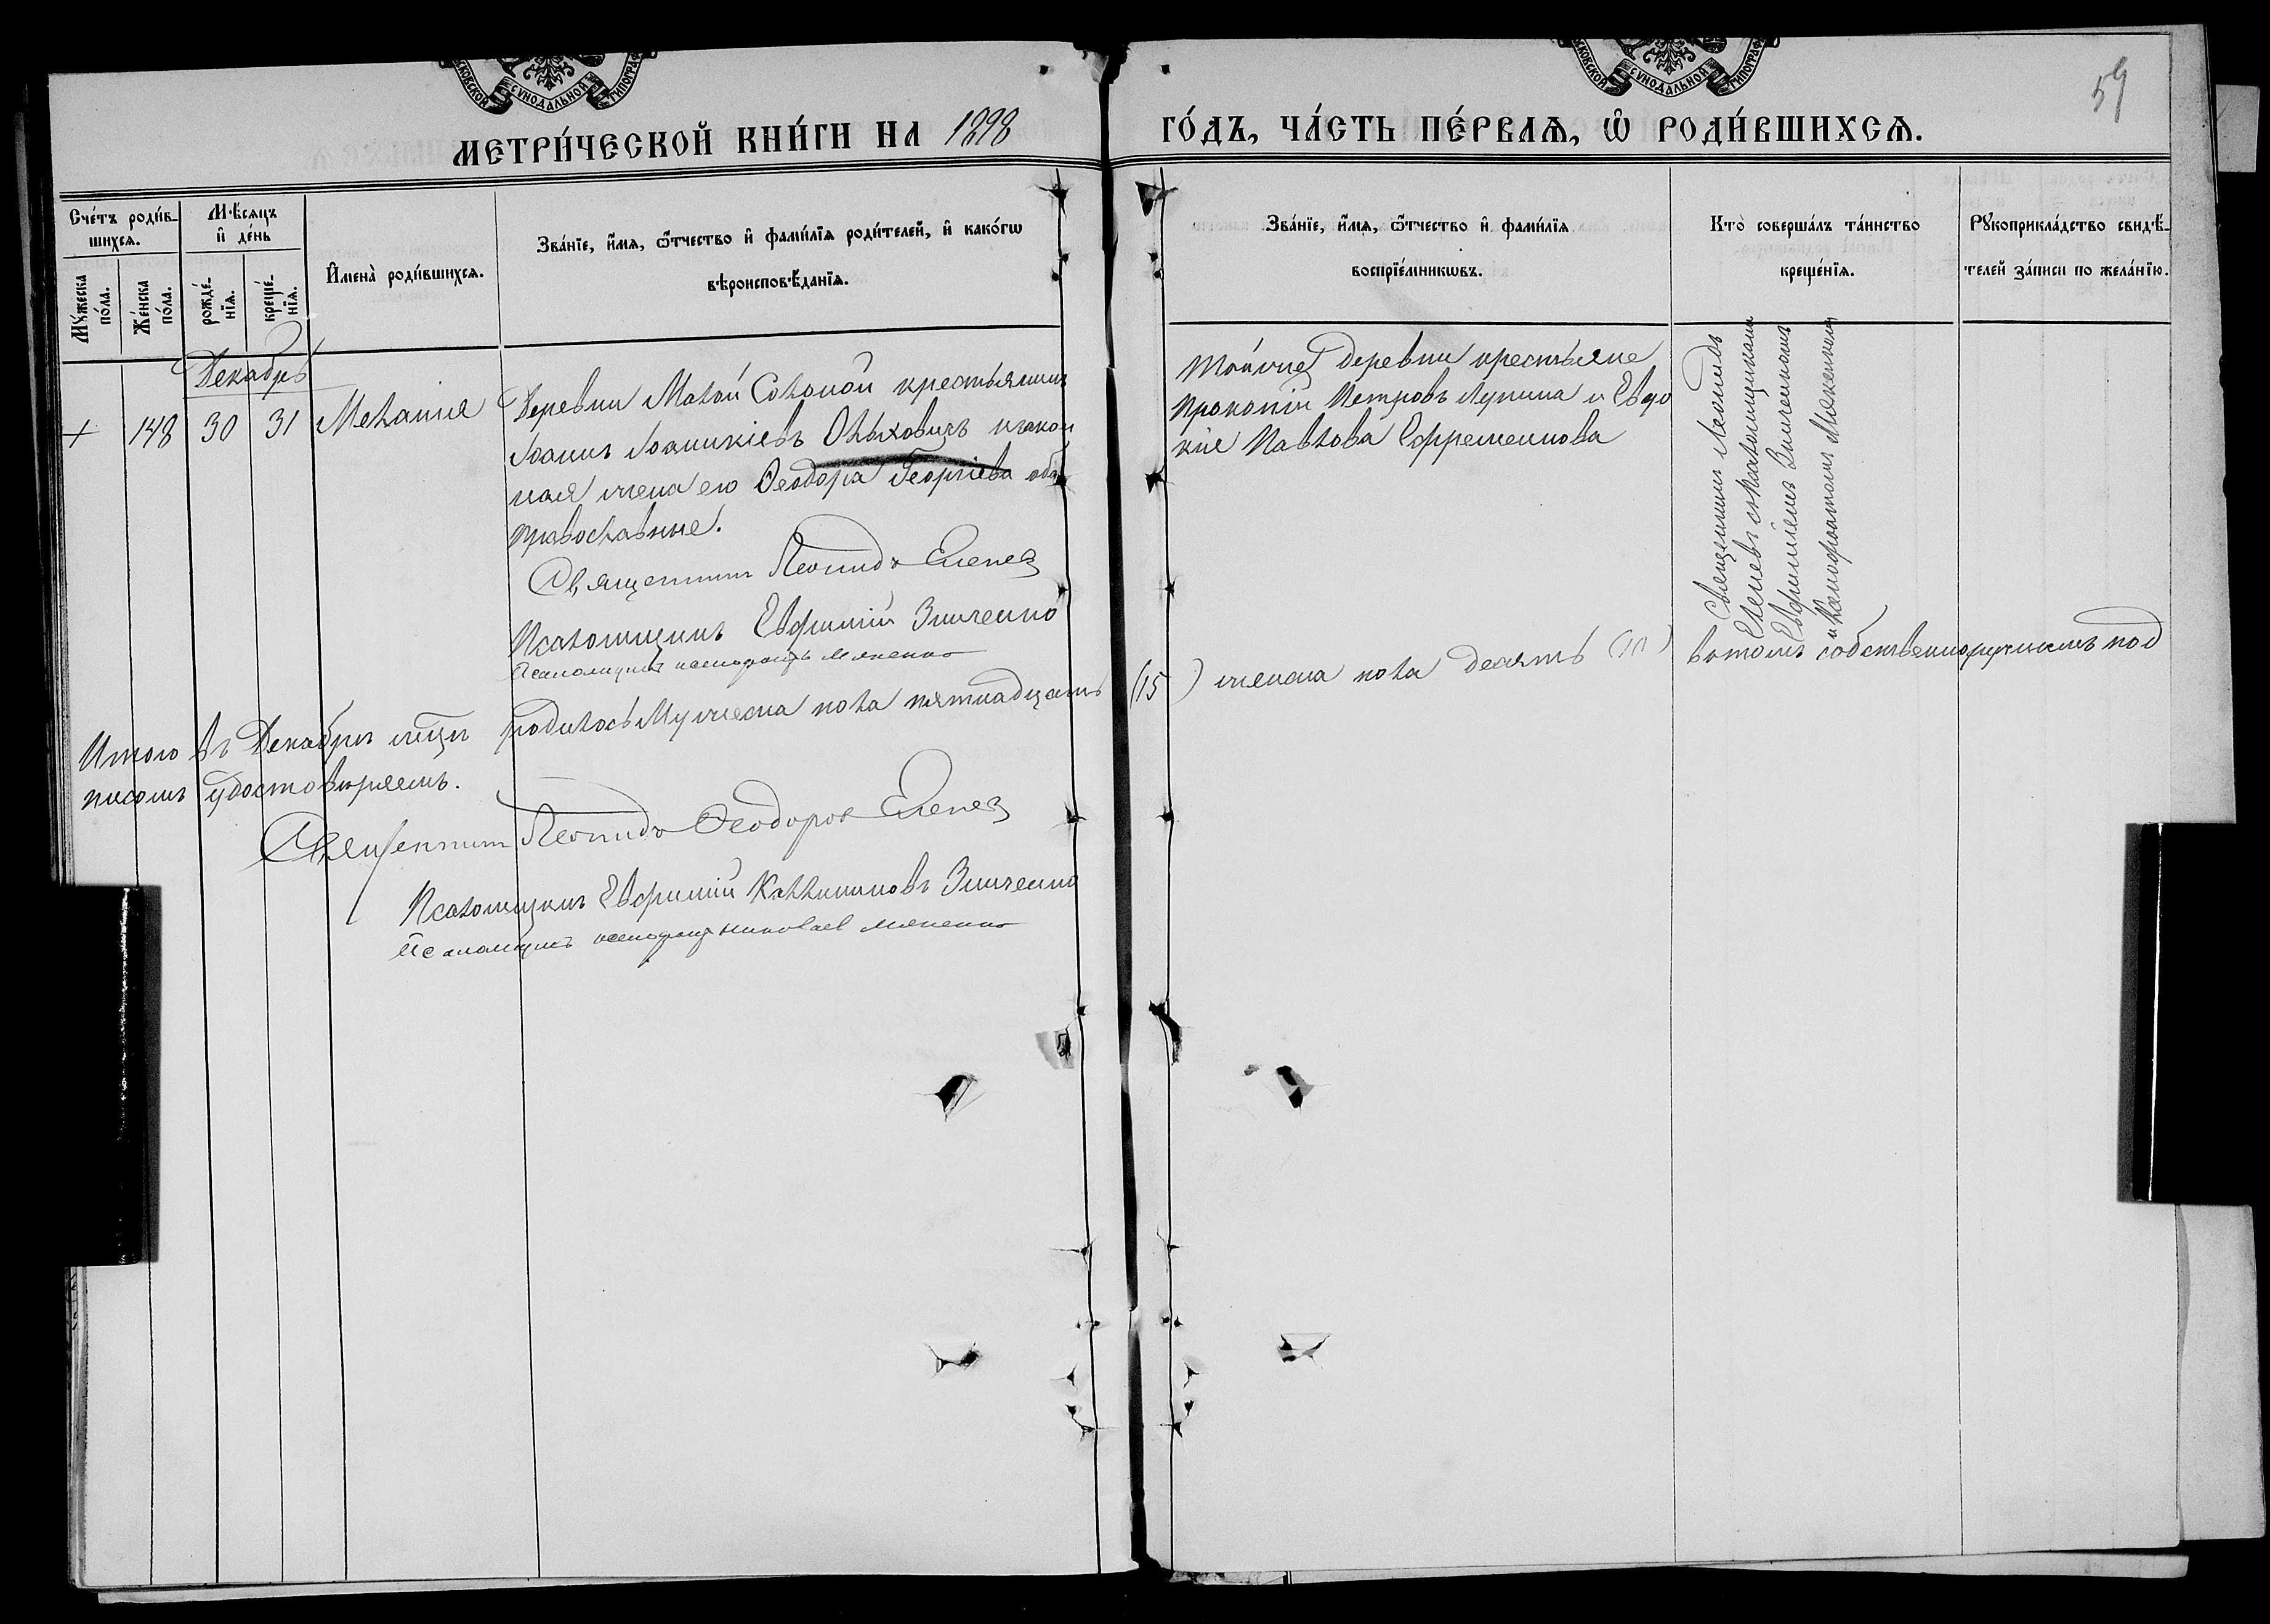 МОСКОВСКОЙ СѴНОДАЛЬНОЙ ТИПОГРАФ
СѴНОДАЛЬНОЙ ТИПОГРАФ
59
МЕТРИ́ЧЕСКОЙ КНИ́ГИ НА 1898 ГО́ДЪ, ЧА́СТЬ ПЕ́РВАѦ, Ѽ РОДИ́ВШИХСѦ.
Сче́тъ роди́в-
шихсѧ.
Мꙋ́жеска по́ла.
Же́нска по́ла.
Мѣ́сѧцъ
и҆ де́нь
рожде́-нїѧ.
креще́-нїѧ.
И҆мена̀ роди́вшихсѧ.
Зва́нїе, и҆́мѧ, ѻ҆́тчество и҆ фами́лїѧ роди́телей, и҆ како́гѡ
вѣроисповѣ́данїѧ.
Зва́нїе, и҆́мѧ, ѻ҆́тчество и҆ фами́лїѧ
воспрїе́мникѡвъ.
Кто̀ соверша́лъ та́инство
креще́нїѧ.
Рꙋкоприкла́дство свидѣ́-
телей за́писи по жела́нїю.
Декабрь
148 30 31 Меланія
Деревни Малой Солоной крестьянинъ
Іоаннъ Іоанникіевъ Ольховичъ и закон
ная жена его Ѳеодора Георгіева оба
православные.
Священникъ Леонидъ Еленев
Псаломщикъ Евфимій Зинченко
Псаломщикъ
Тойже деревни крестьяне
Прокопій Петровъ Лупина и Евдо
кія Павлова Ефременкова
Священникъ Леонидъ
Еленевъ съ псаломщиками
Евфиміемъ Зинченкомъ
Итого въ Декабрѣ мцѣ родилось Мужеска пола пятнадцать (15) женска пола десять (10) въ томъ собственноручнымъ под
писомъ удостовѣряемъ.
Священникъ Леонидъ Ѳеодоров Еленев
Псаломщикъ Евфимій Каллиниковъ Зинченко
Псаломщикъ Николаев